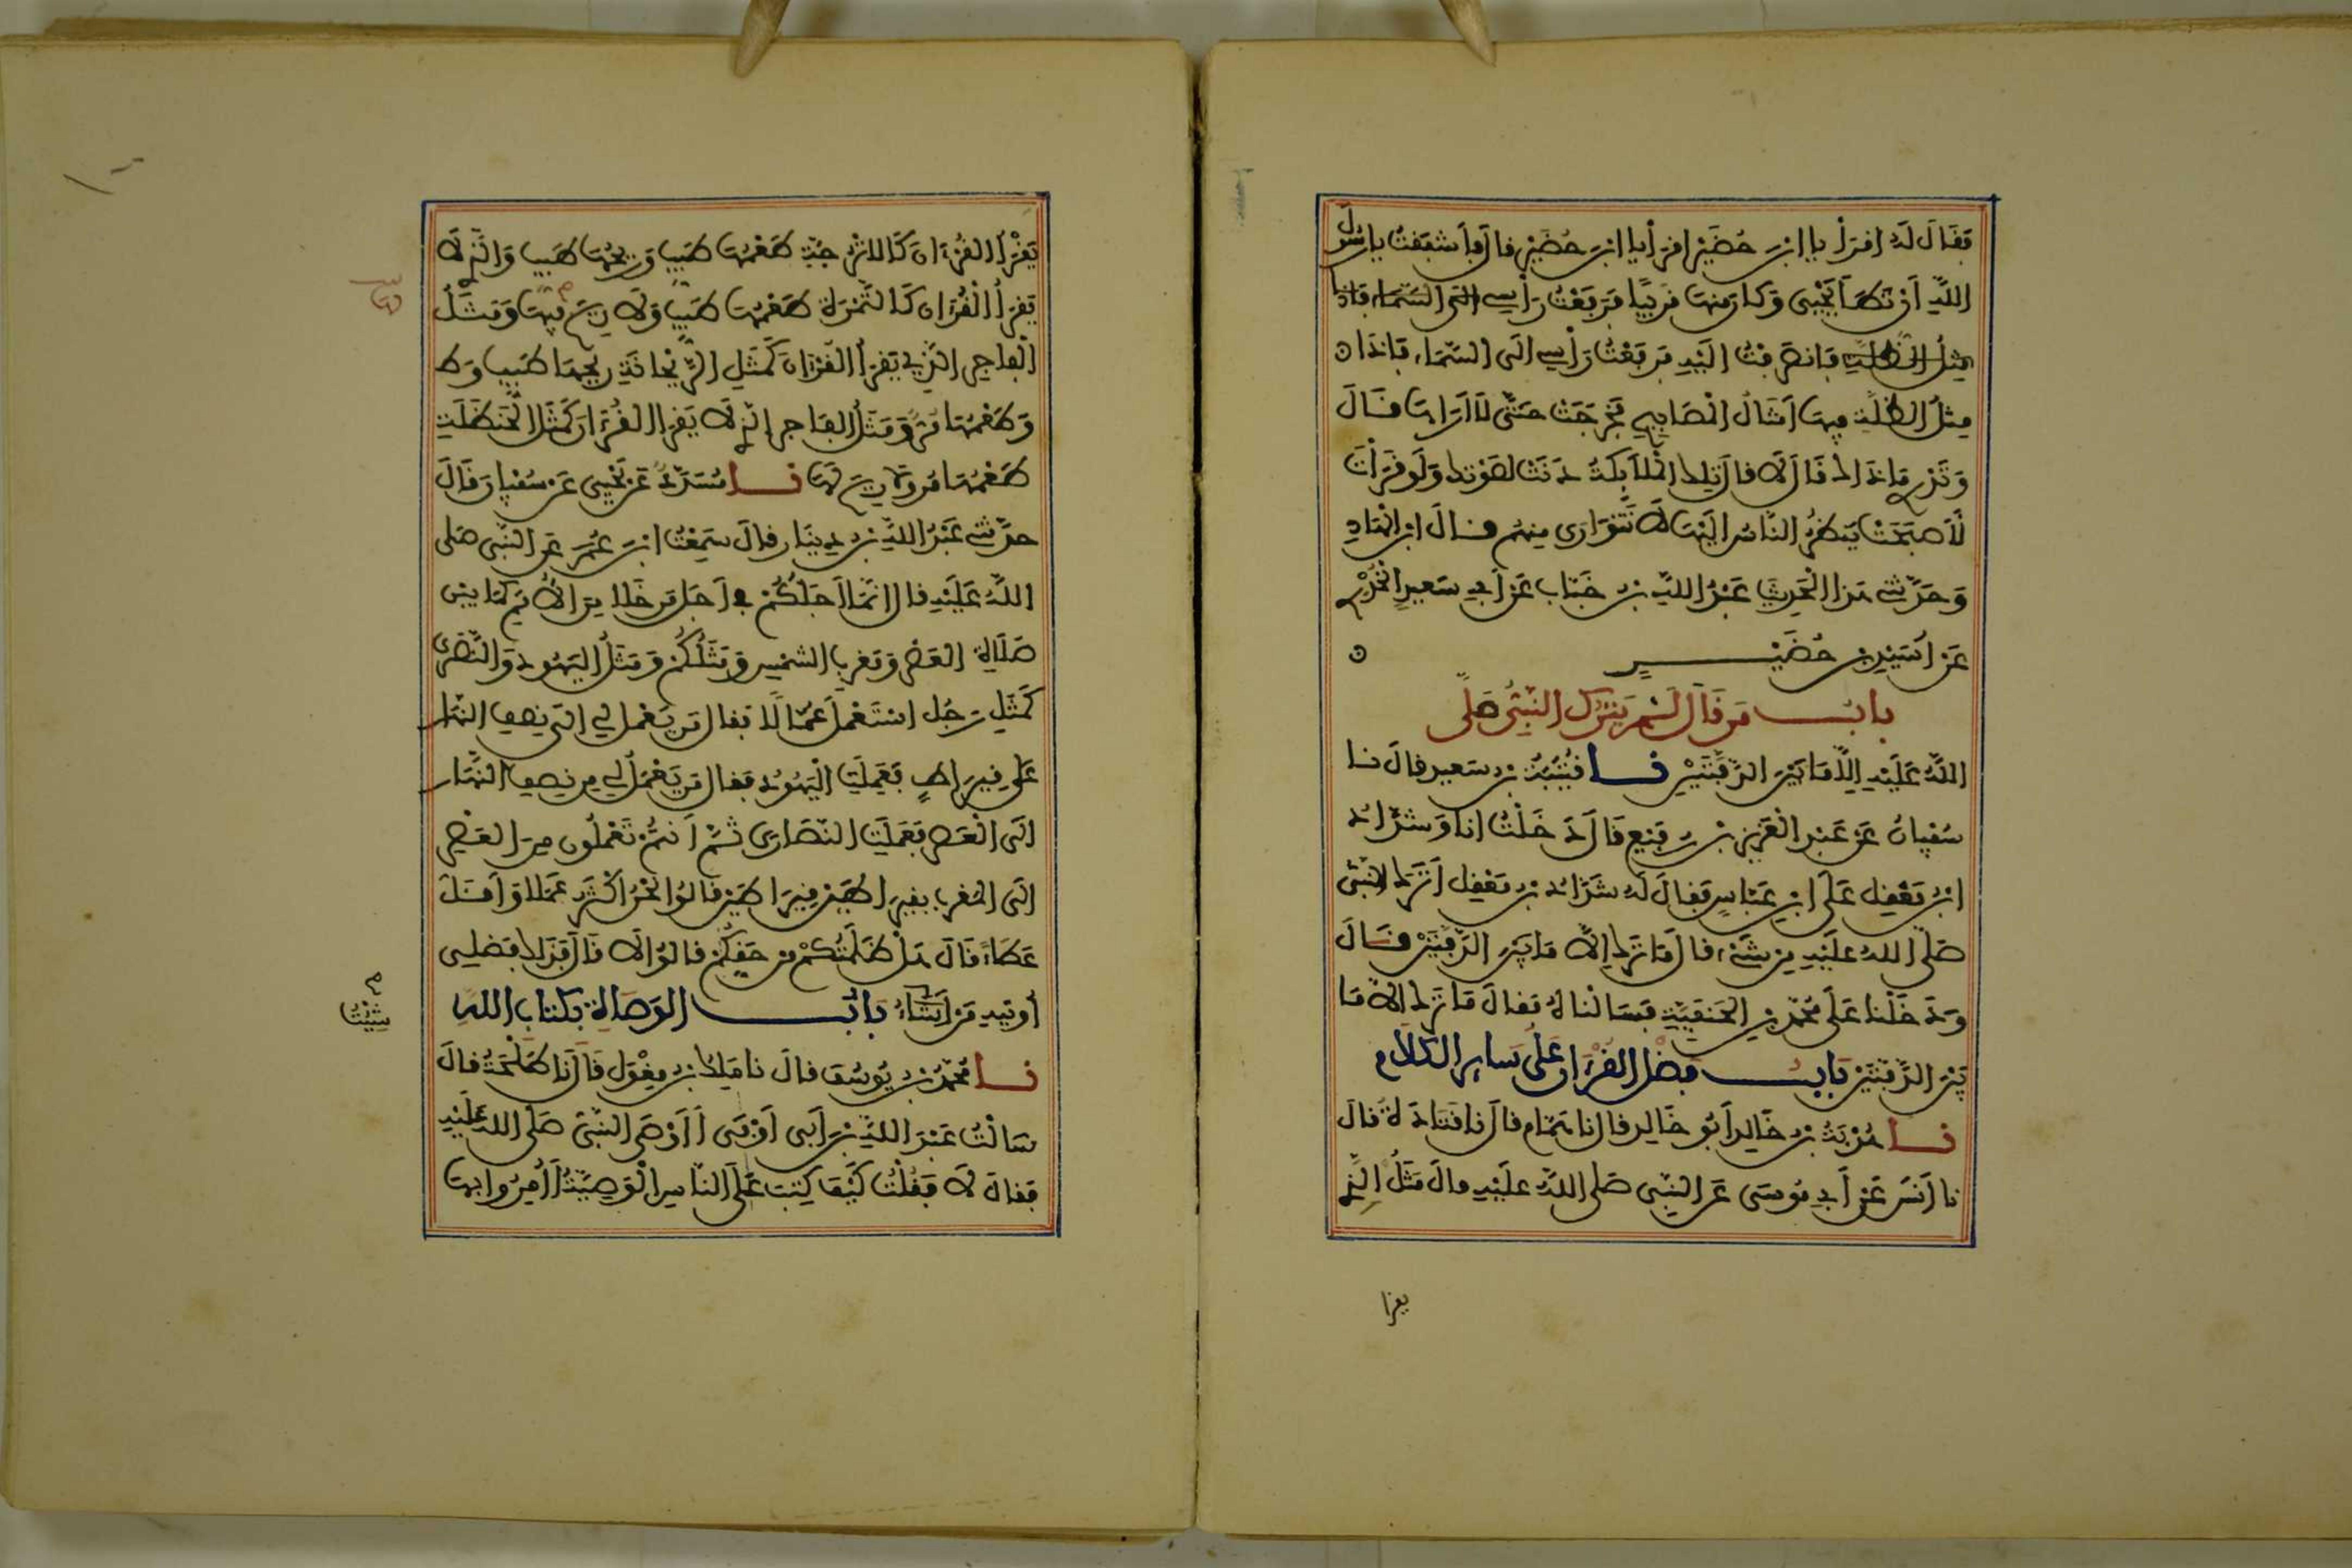 فقال له اقرأ يا ابن حضير اقرأ يا ابن حضير قال فأشفقت يا رسول
الله أن تطأ يحيى وكان منها قريبا فرفعت رأسي إلى السماء فإذا
مثل الظلة فانصرفت إليه فرفعت رأسي إلى السماء فإذا
مثل الظلة فيها أمثال المصابيح فخرجت حتى لا أراها قال
وتدري ما ذاك قال لا قال تلك الملائكة دنت لصوتك ولو قرأت
لأصبحت ينظر الناس إليها لا تتوارى منهم قال ابن الهاد
وحدثني هذا الحديث عبد الله بن خباب عن أبي سعيد الخدري
عن أسيد بن حضير
باب من قال لم يترك النبي صلى
الله عليه إلا ما بين الدفتين نا قتيبة بن سعيد قال نا
سفيان عن عبد العزيز بن رفيع قال دخلت أنا وشداد
ابن معقل على ابن عباس فقال له شداد بن معقل أترك النبي
صلى الله عليه من شيء قال ما ترك إلا ما بين الدفتين قال
ودخلنا على محمد بن الحنفية فسألناه فقال ما ترك إلا ما
بين الدفتين باب فضل القرءان على سائر الكلام
نا هدبة بن خالد أبو خالد قال نا همام قال نا قتادة قال
نا أنس عن أبي موسى عن النبي صلى الله عليه قال مثل الذي
يقرأ
يقرأ القرءان كالاترجة طعمها طيب وريحها طيب والذي لا
يقرأ القرءان كالتمرة طعمها طيب ولا ريح فيها ومثل
الفاجر الذي يقرأ القرءان كمثل الريحانة ريحها طيب وط
وطعمها مر ومثل الفاجر الذي لا يقرأ القرءان كمثل الحنظلة
طعمها مر ولا ريح لها نا مسدد عن يحيى عن سفيان قال
حدثني عبد الله بن دينار قال سمعت ابن عمر عن النبي صلى
الله عليه قال إنما أجلكم في أجل من خلا من الأمم كما بين
صلاة العصر ومغرب الشمس ومثلكم ومثل اليهود والنصرى
كمثل رجل استعمل عمالا فقال من يعمل لي إلى نصف النهار
على قيراط فعملت اليهود فقال من يعمل لي من نصف النهار
إلى العصر فعملت النصارى ثم أنتم تعملون من العصر
إلى المغرب بقيراطين قيراطين قالوا نحن أكثر عملا وأقل
عطاء قال هل ظلمتكم من حقكم قالوا لا قال فذلك فضلي
أوتيه من أشاء باب الوصاة بكتاب الله
شئت
نا محمد بن يوسف قال نا ملك بن مغول قال نا طلحة قال
سألت عبد الله بن أبي أوفى أأوصى النبي صلى الله عليه
فقال لا فقلت كيف كتب على الناس الوصية أأمروا بها